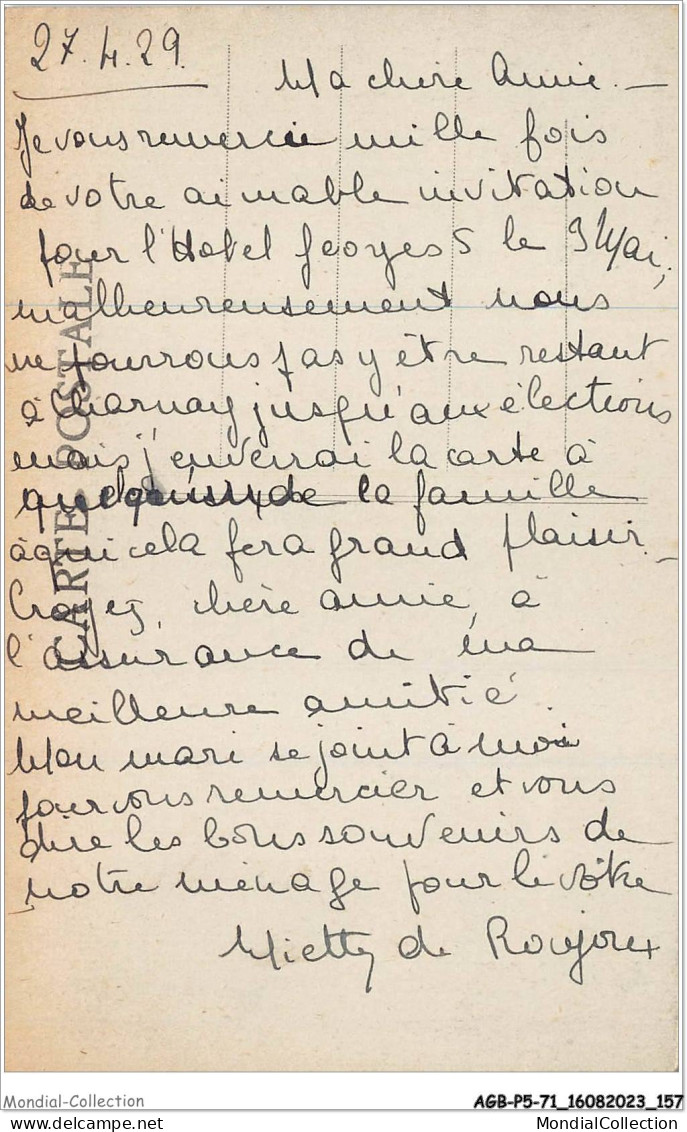 27.4.29.
Ma chère Annie. —
Je vous remercie mille fois
de votre aimable invitation
pour l'Hotel Georges 5 le 3 Mai,
malheureusement nous
ne pourrons pas y être restant
à Charnay jusqu'aux élections
mais j'enverrai la carte à
quelqu'un de la famille
à qui cela fera grand plaisir. —
Croyez, chère Annie, à
l'assurance de ma
meilleure amitié.
Mon mari se joint à moi
pour vous remercier et vous
dire les bons souvenirs de
notre ménage pour le vôtre
Mietty de Roujoux
CARTE POSTALE
Mondial-Collection
AGB-P5-71_16082023_157
MondialCollection.com